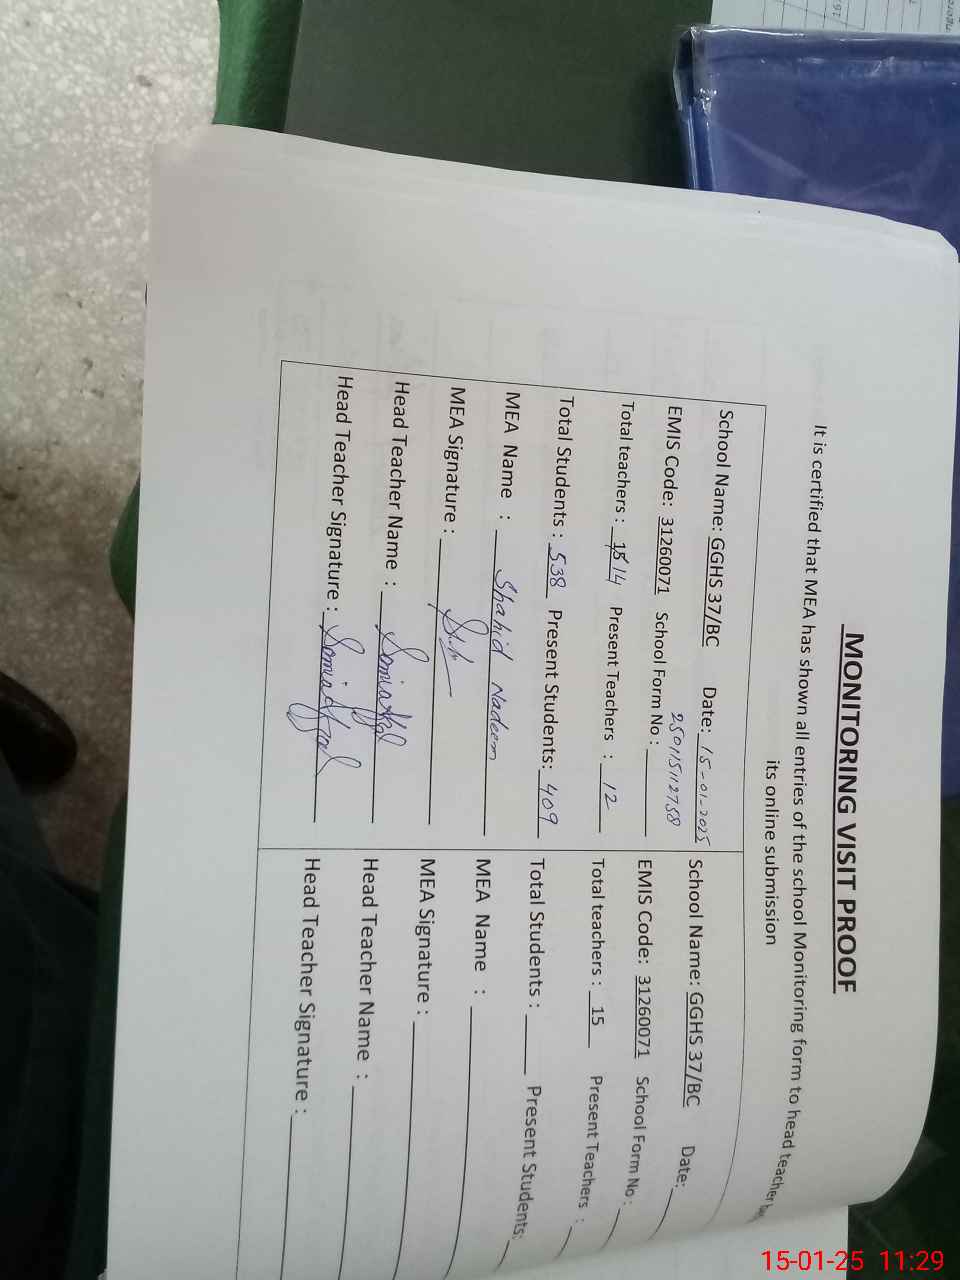 MONITORING VISIT PROOF
It is certified that MEA has shown all entries of the school Monitoring form to head teacher
its online submission
School Name: GGHS 37/BC Date: 15-01-2025
EMIS Code: 31260071 School Form No : 250115112758
Total teachers : 15 14 Present Teachers : 12
Total Students : 538 Present Students: 409
MEA Name : Shahid Nadeem
MEA Signature :
Head Teacher Name : Sonia Afzal
Head Teacher Signature : Sonia Afzal
School Name: GGHS 37/BC Date:
EMIS Code: 31260071 School Form No :
Total teachers : 15 Present Teachers :
Total Students : Present Students:
MEA Name :
MEA Signature :
Head Teacher Name :
Head Teacher Signature :
15-01-25 11:29